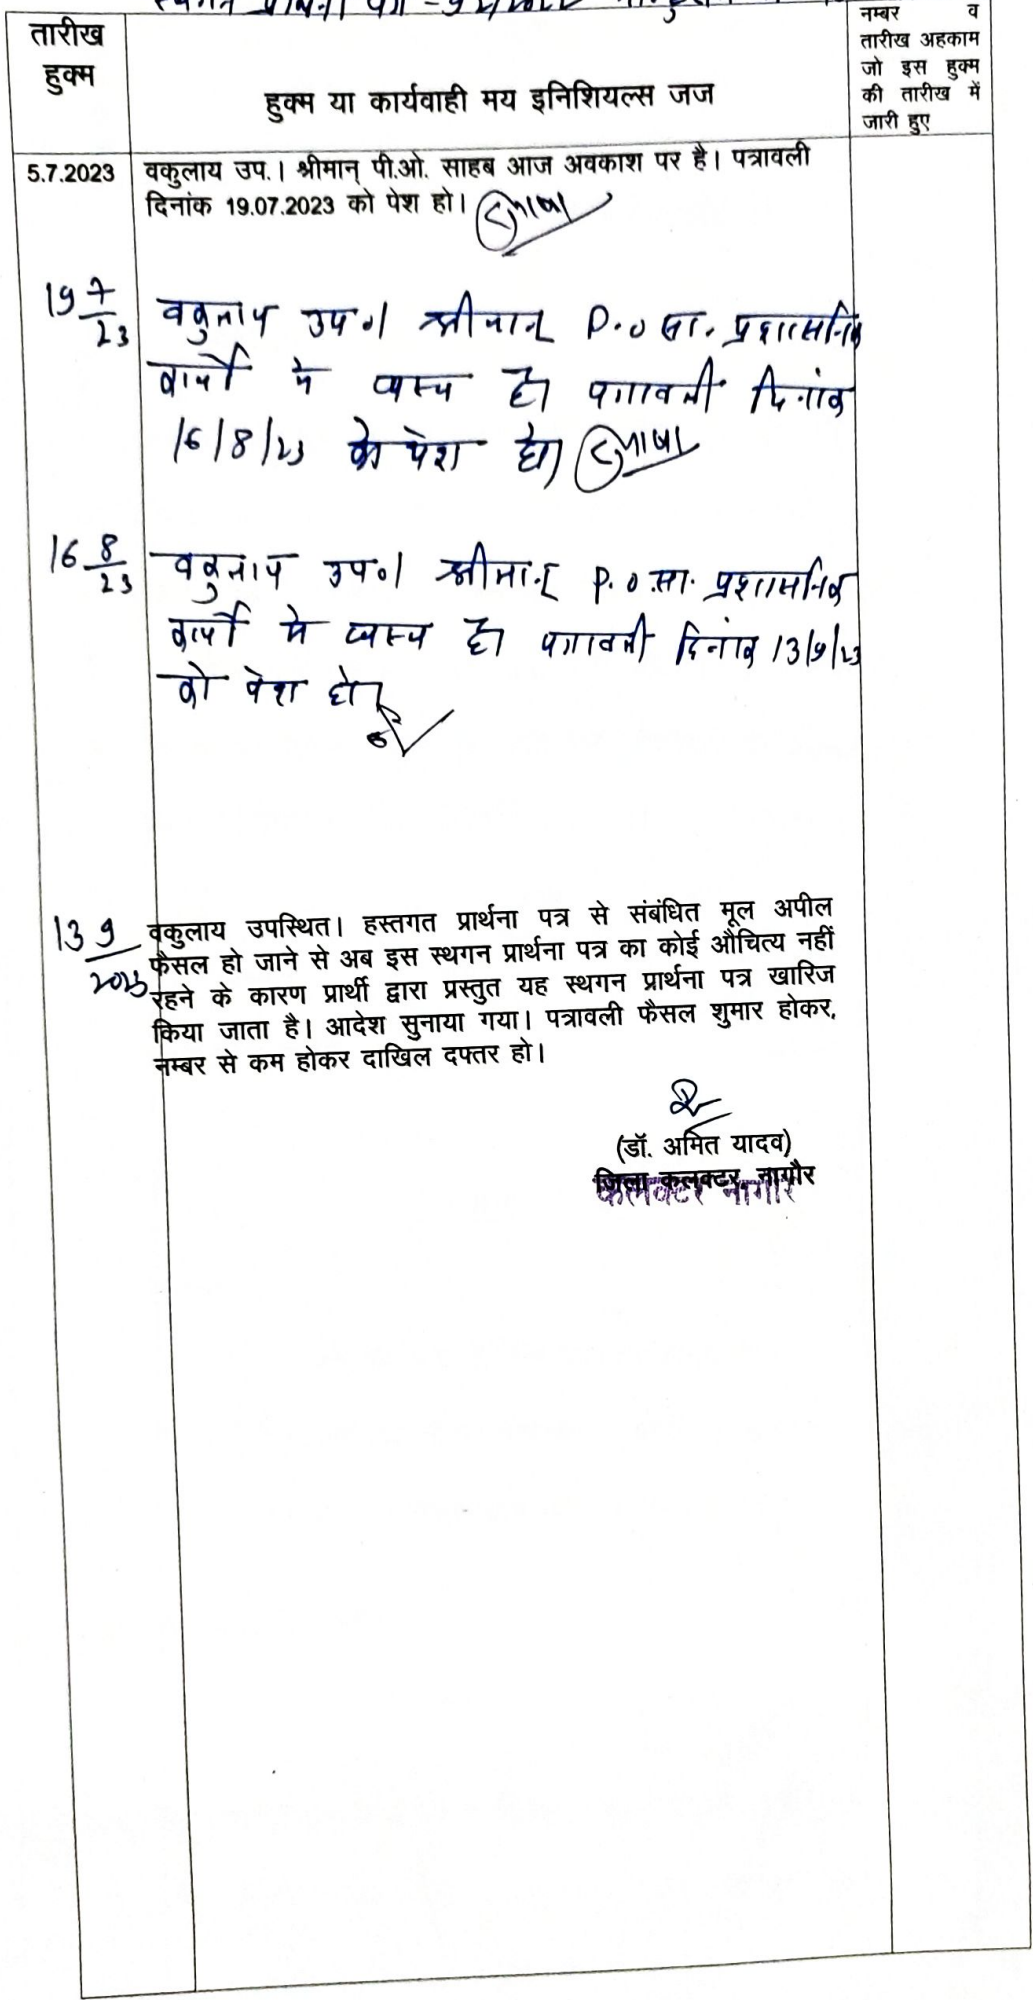 स्थगन प्रार्थना पत्र
तारीख
हुक्म
हुक्म या कार्यवाही मय इनिशियल्स जज
नम्बर व
तारीख अहकाम
जो इस हुक्म
की तारीख में
जारी हुए
5.7.2023 वकुलाय उप.। श्रीमान् पी.ओ. साहब आज अवकाश पर है। पत्रावली
दिनांक 19.07.2023 को पेश हो।
19 7/23 वकुलाय उप०। श्रीमान् P.O सा. प्रशासनिक
कार्यो मे व्यस्त है। पत्रावली दिनांक
16/8/23 को पेश हो।
16 8/23 वकुलाय उप०। श्रीमान् P.O.सा. प्रशासनिक
कार्यो मे व्यस्त है। पत्रावली दिनांक 13/9/23
को पेश हो।
13 9/2023 वकुलाय उपस्थित। हस्तगत प्रार्थना पत्र से संबंधित मूल अपील
फैसल हो जाने से अब इस स्थगन प्रार्थना पत्र का कोई औचित्य नहीं
रहने के कारण प्रार्थी द्वारा प्रस्तुत यह स्थगन प्रार्थना पत्र खारिज
किया जाता है। आदेश सुनाया गया। पत्रावली फैसल शुमार होकर,
नम्बर से कम होकर दाखिल दफ्तर हो।
(डॉ. अमित यादव)
जिला कलक्टर, नागौर
कलक्टर नागौर